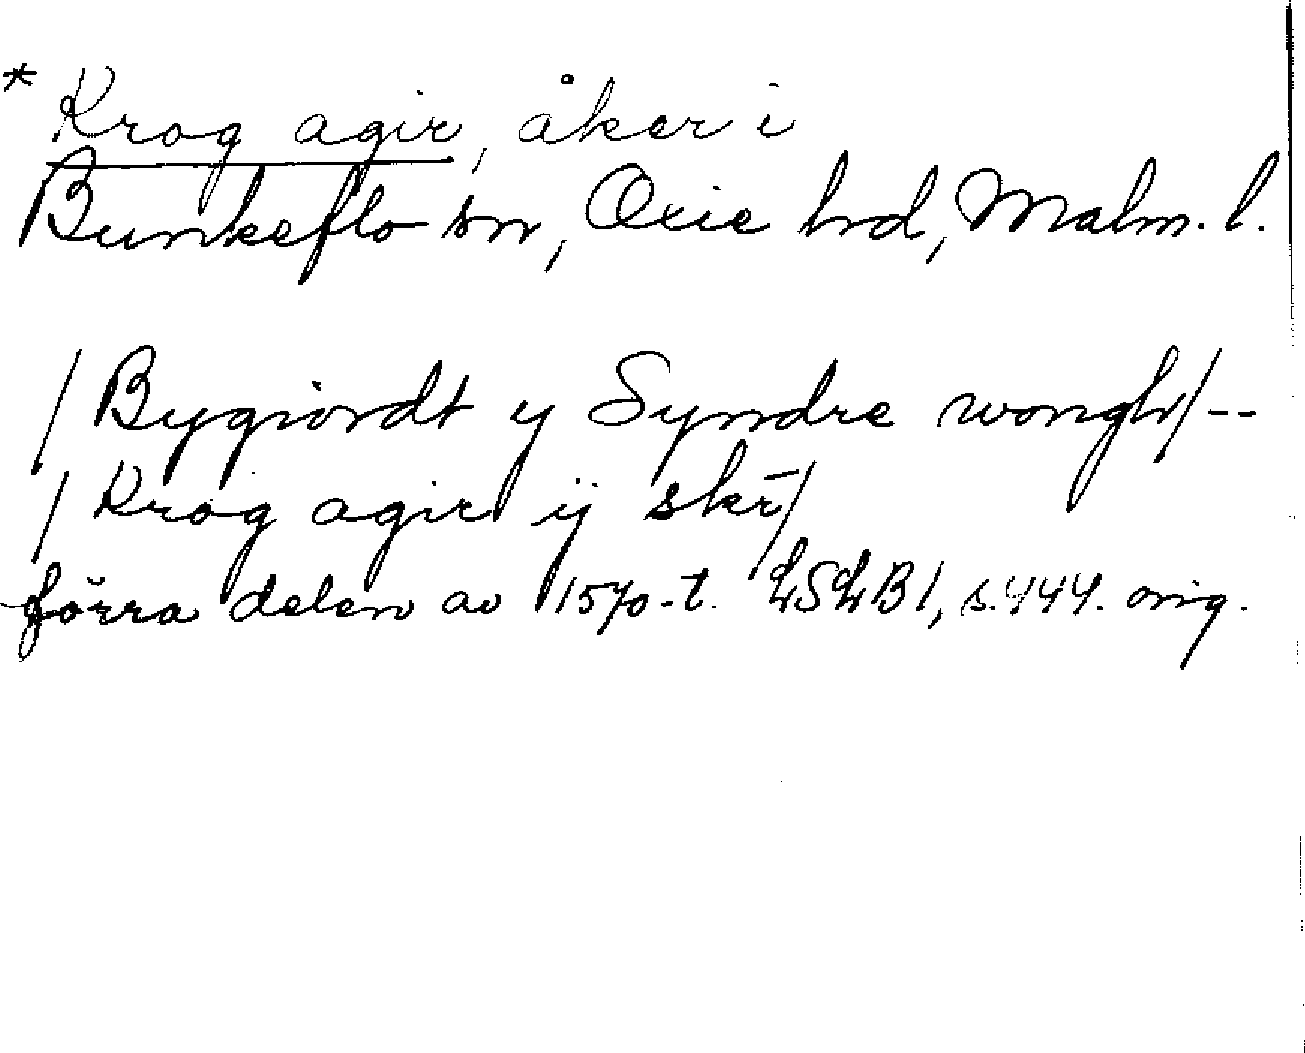 * Krog agir, åker i
Bunkeflo sn, Oxie hd, Malm. l.
/Bygiordt y Syndre wongh/--
/Krog agir ÿ skr̄/
förra delen av 1570-t. LSLB1, s.444. orig.